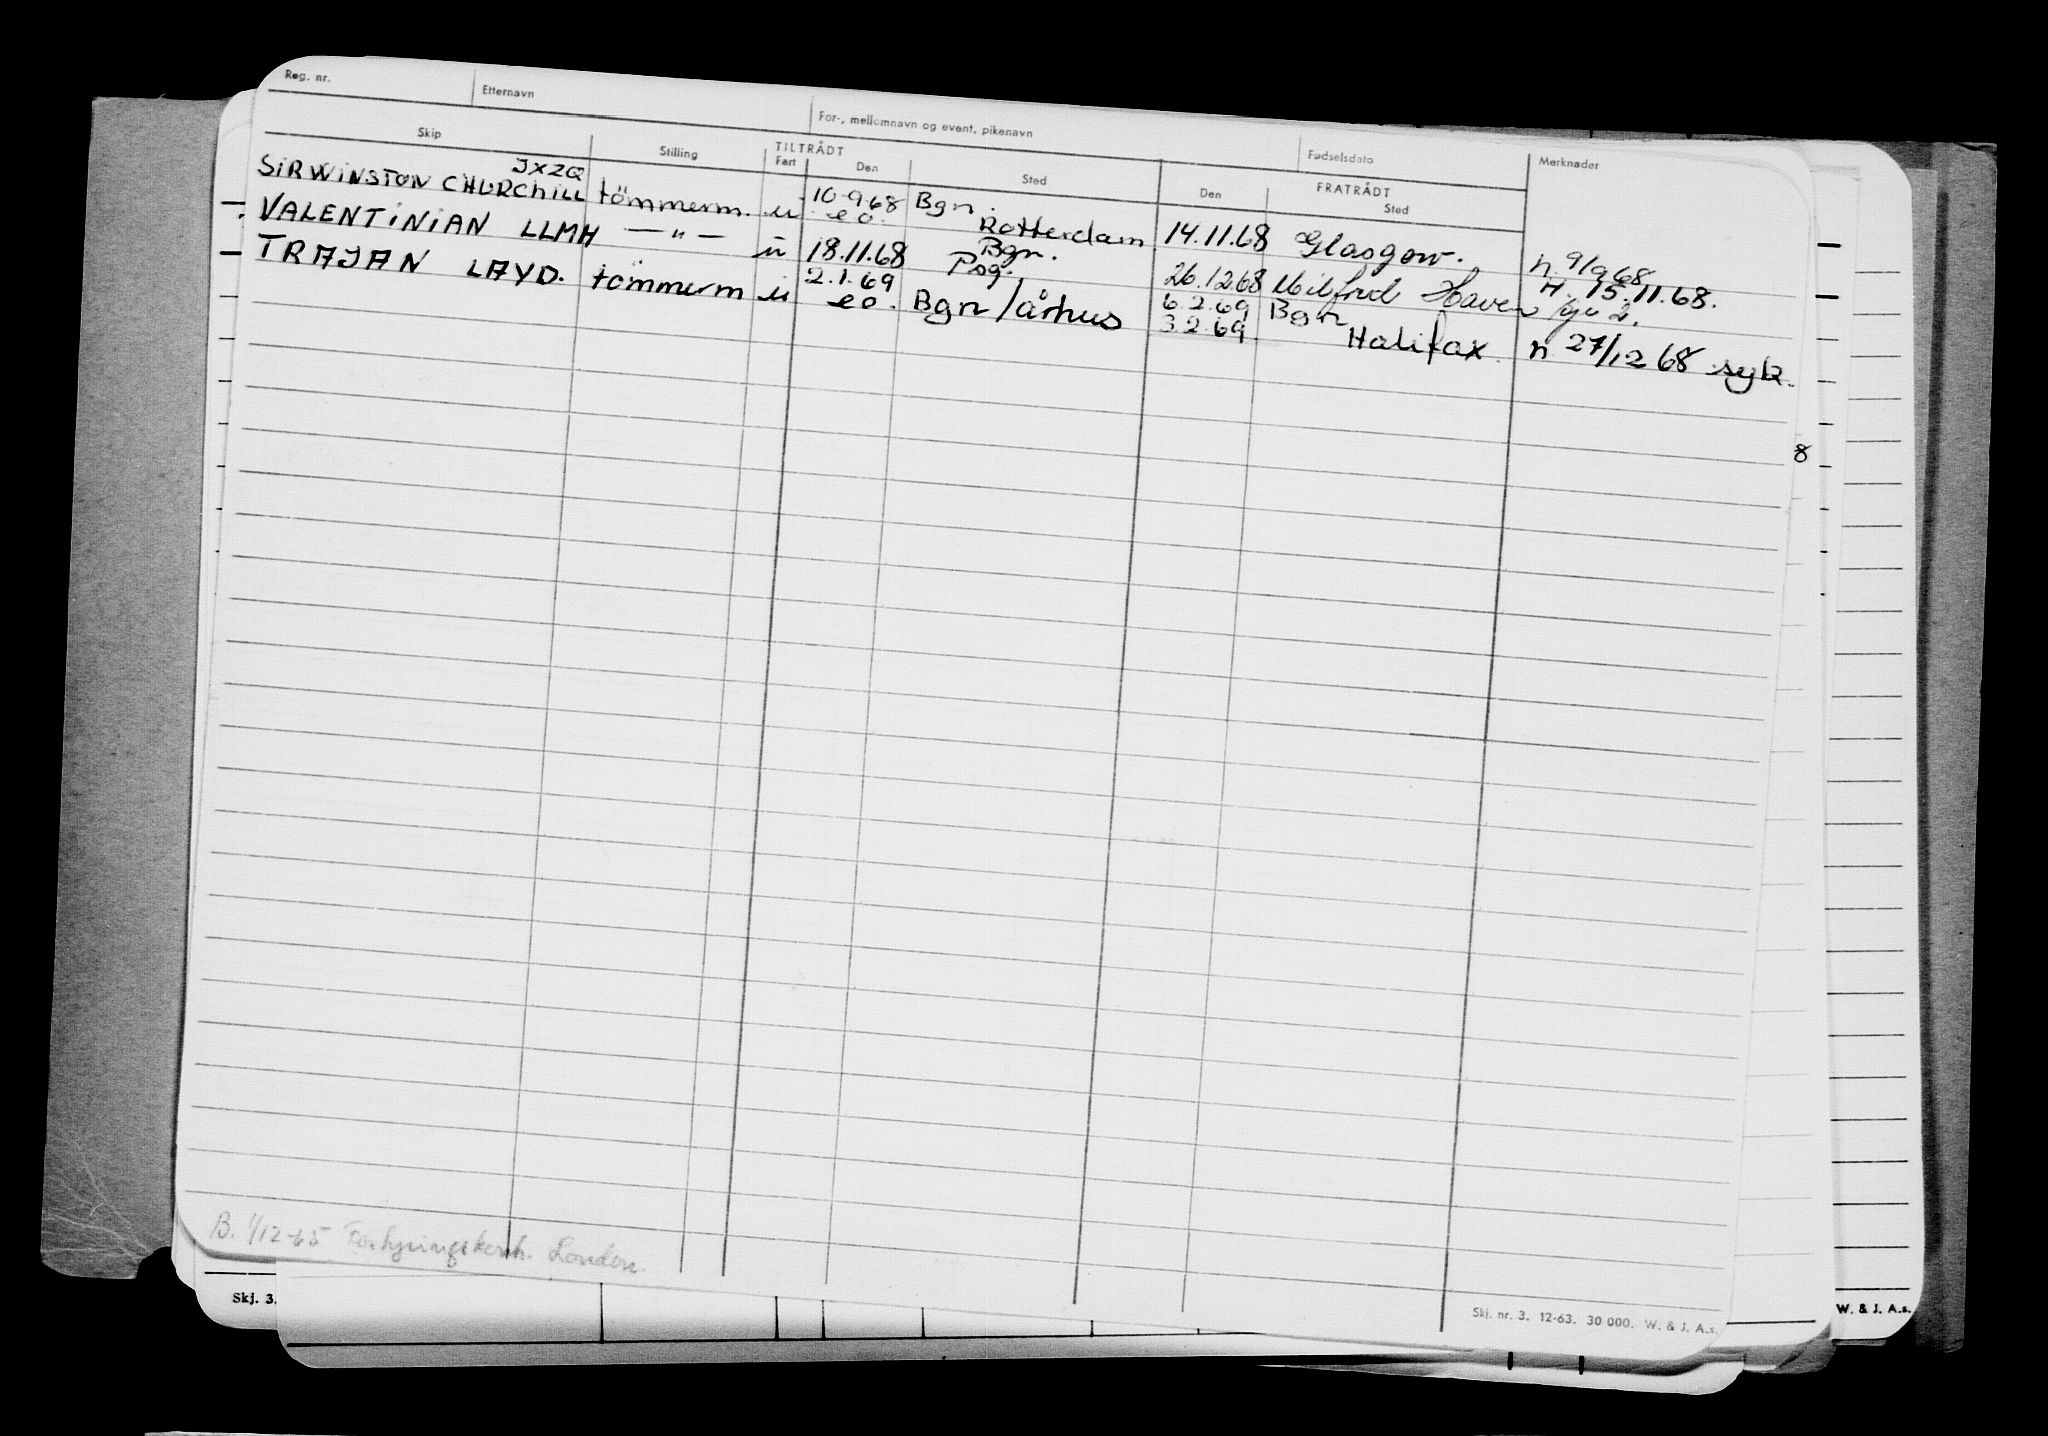 Reg. nr. Etternavn For-, mellomnavn og event. pikenavn Fødselsdato Merknader
Skip Stilling TILTRÅDT FRATRÅDT
Fart Den Sted Den Sted
JXZQ
SIR WINSTON CHURCHILL tömmerm. u 10-9.68 eo. Bgn. Rotterdam 14.11.68 Glasgow. n 9/9 68
VALENTINIAN LLMH —"— u 18.11.68 Bgn. 26.12.68 Milford Haven H. 15.11.68.
TRAJAN LAYD. tömmerm u 2.1.69 Psg.
eo. Bgn/århus 6.2.69 Bgn
3.2.69. Halifax. n 27/12 68 syk.
8
B. 1/12-65 London.
Skj. 3.
Skj. nr. 3. 12-63. 30 000. W. & J. A.s.
W. & J. A.s.